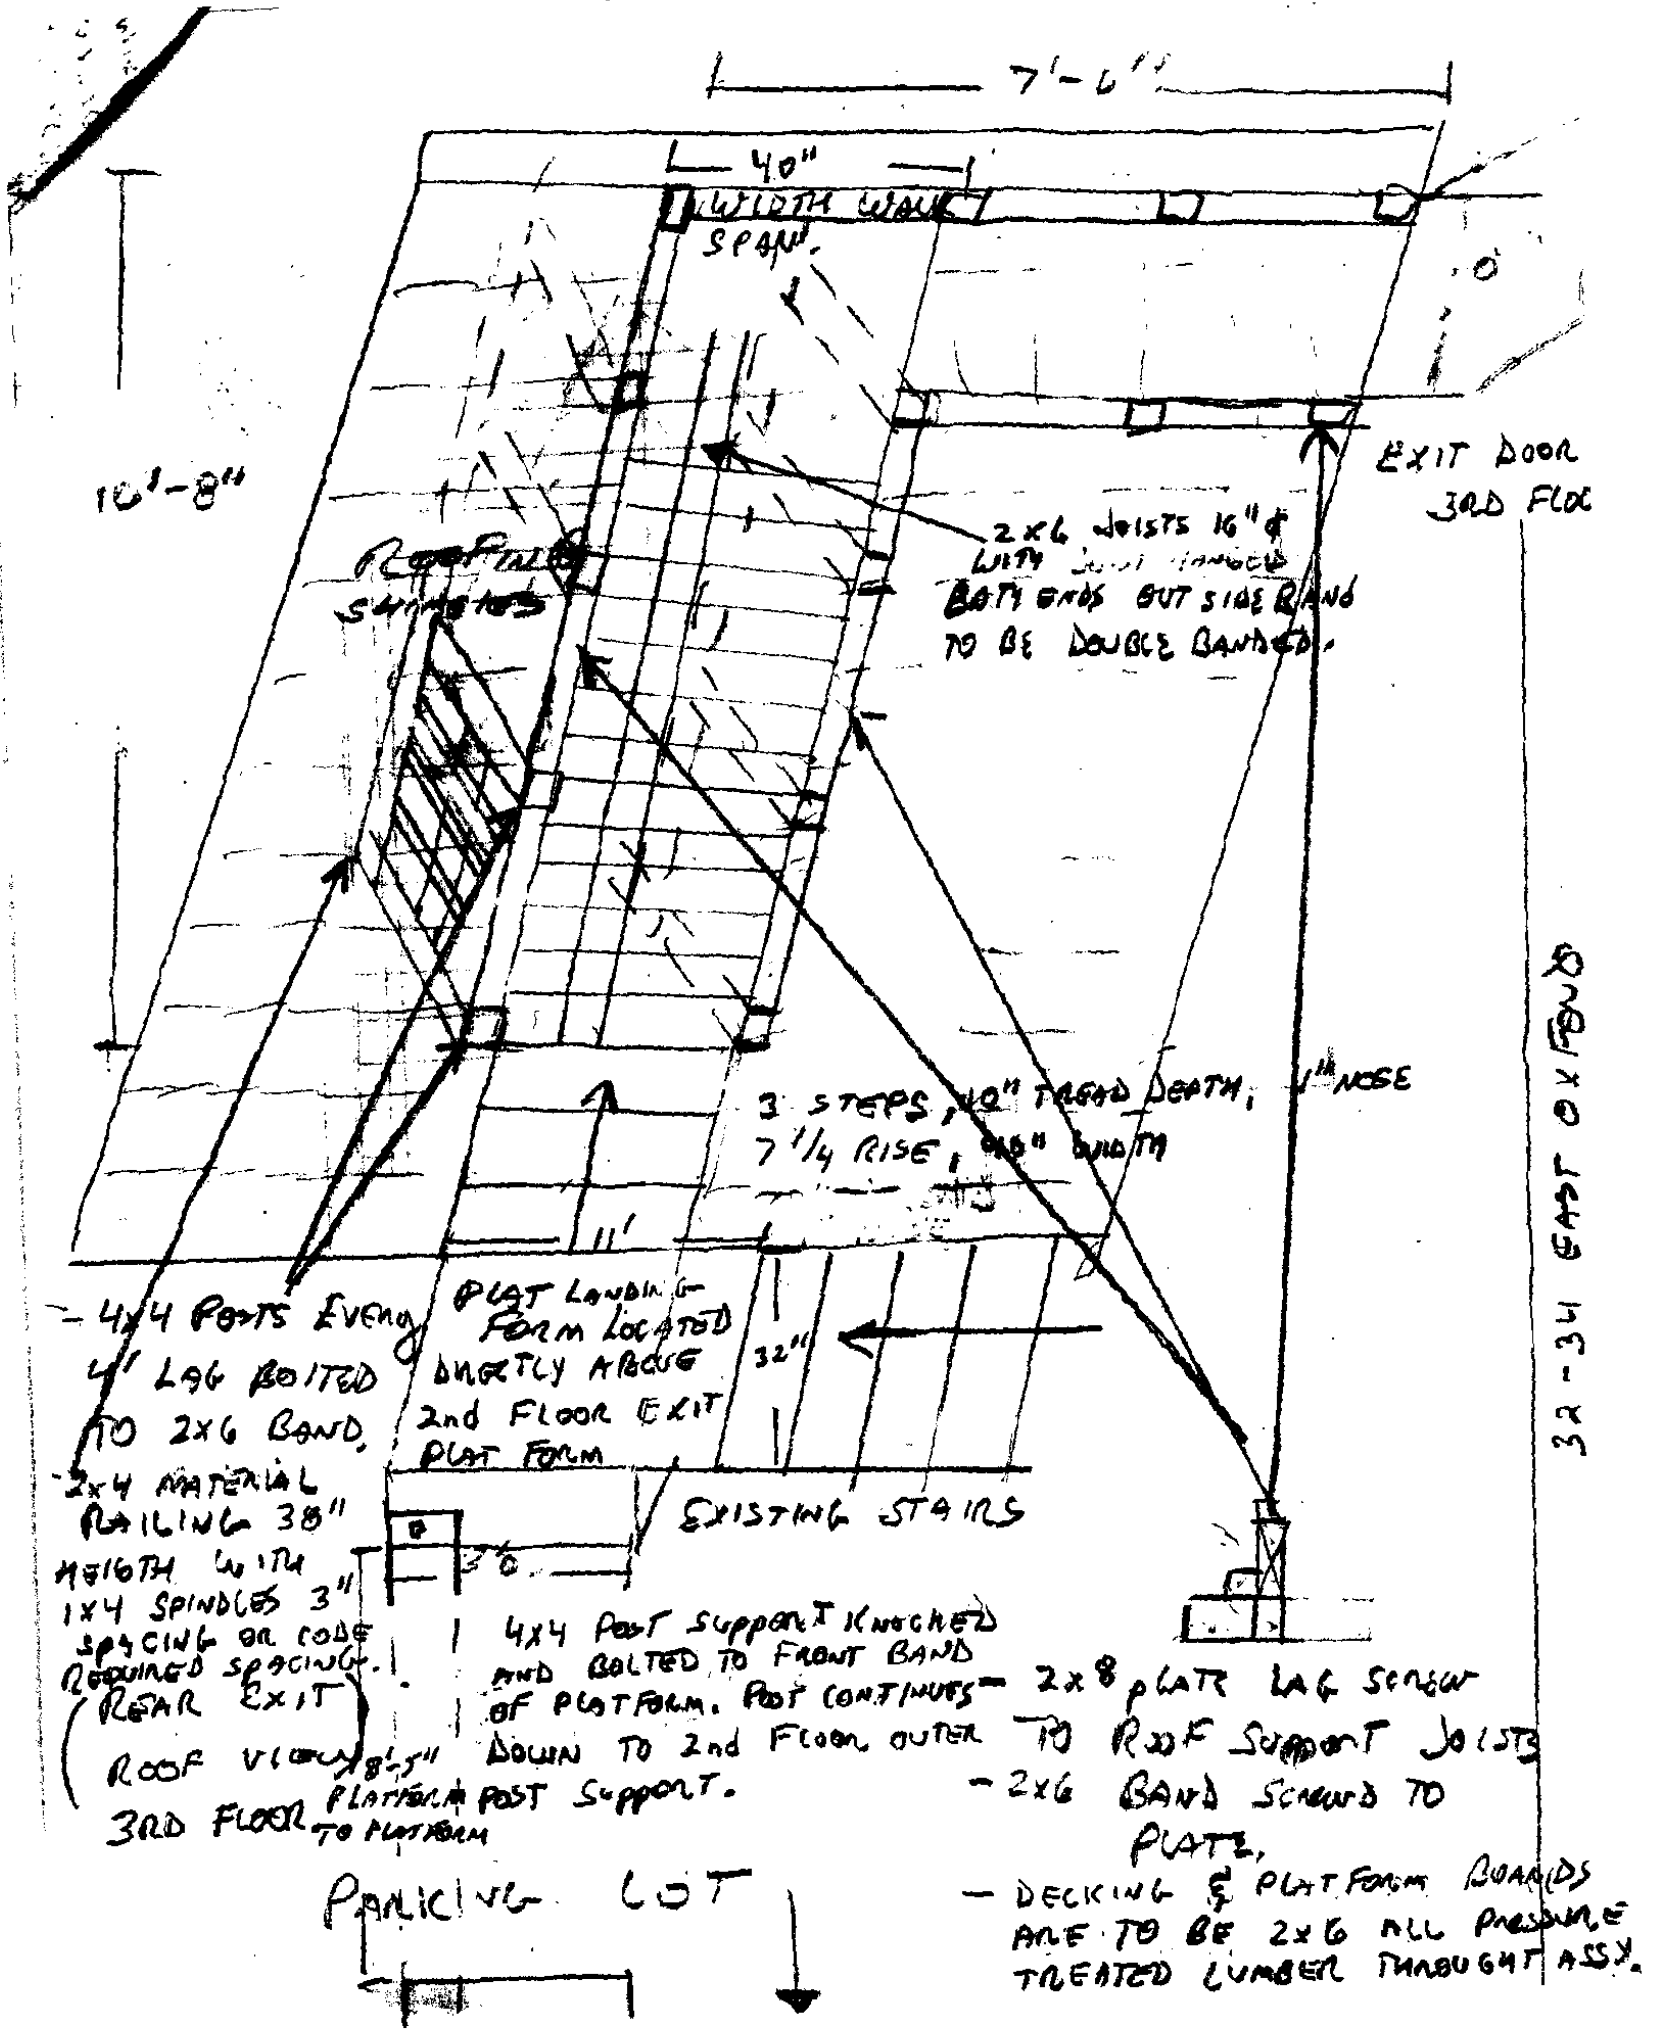 7'-6"
40"
WIDTH WALK
SPAN.
EXIT DOOR
3RD FLO
2x6 JOISTS 16"
WITH
BOTH ENDS OUTSIDE BAND
TO BE DOUBLE BANDED.
ROOFING
SHINGLES
3 STEPS, 10" TREAD DEPTH, 1" NOSE
7 1/4 RISE, WIDTH
11'
32"
32-34 EAST OXFORD
- 4x4 POSTS EVERY
4' LAG BOLTED
TO 2x6 BAND.
- 2x4 MATERIAL
RAILING 38"
HEIGTH WITH
1x4 SPINDLES 3"
SPACING OR CODE
REQUIRED SPACING.
PLAT LANDING
FORM LOCATED
DIRECTLY ABOVE
2nd FLOOR EXIT
PLAT FORM
EXISTING STAIRS
3'0
4x4 POST SUPPORT KNOCHED
AND BOLTED TO FRONT BAND
OF PLATFORM. POST CONTINUES
DOWN TO 2nd FLOOR OUTER
POST SUPPORT.
REAR EXIT
ROOF VIEW
3RD FLOOR
8'-5"
PLATFORM
TO PLATFORM
- 2x8 PLATE LAG SCREW
TO ROOF SUPPORT JOISTS
- 2x6 BAND SCREWED TO
PLATE.
- DECKING & PLATFORM BOARDS
ARE TO BE 2x6 ALL PRESSURE
TREATED LUMBER THROUGHT ASSY.
PARKING LOT